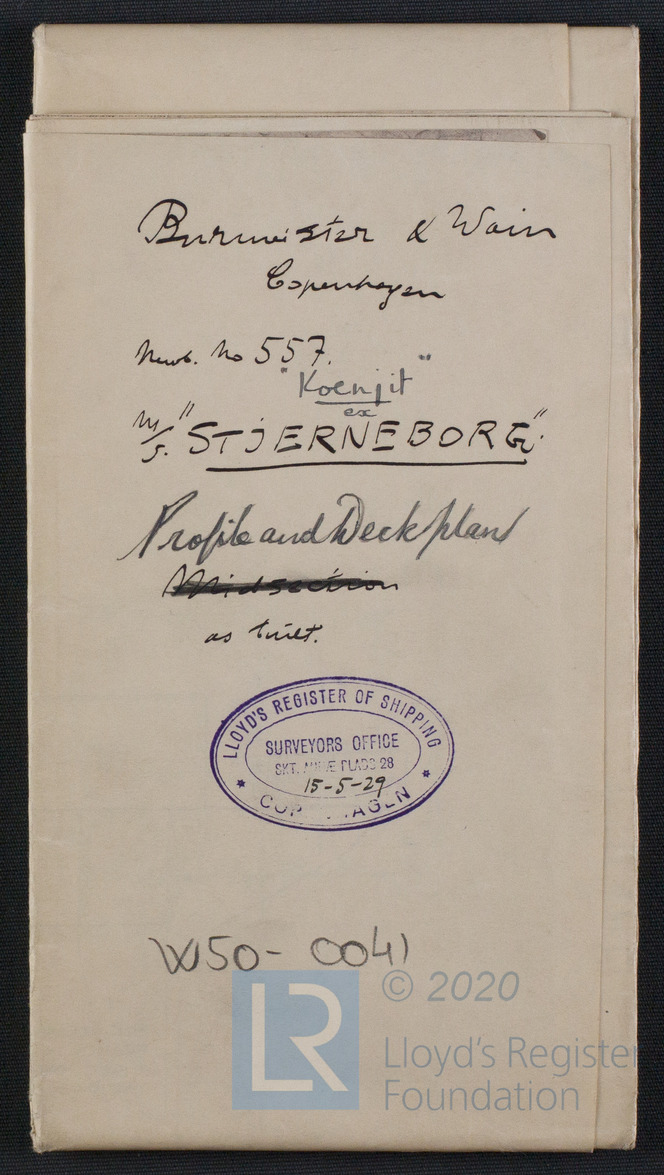 Burmeister & Wain
Copenhagen
Newb. No 557.
"Koenjit"
ex
M/S. "STJERNEBORG".
Profile and Deck plan
Midsection
as built.
LLOYD'S REGISTER OF SHIPPING
SURVEYORS OFFICE
SKT. ANNÆ PLADS 28
15-5-29
COPENHAGEN
W50-0041
© 2020
LR
Lloyd's Register
Foundation